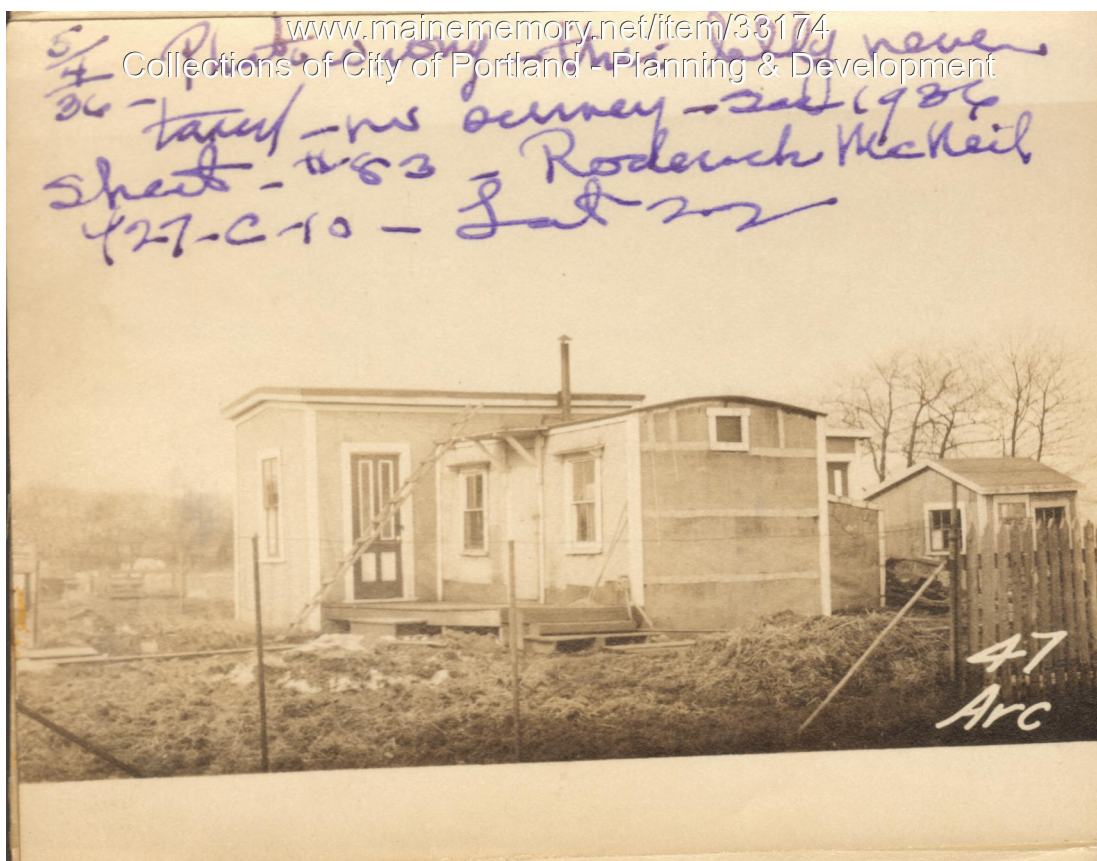 www.mainememory.net/item/33174
Collections of City of Portland - Planning & Development
5/4
36 - Photo wrong - this bldg never
taxed - no survey - 1936
Sheet - #83 - Roderick McNeil
427-C-10 - Lot 22
47
Arc